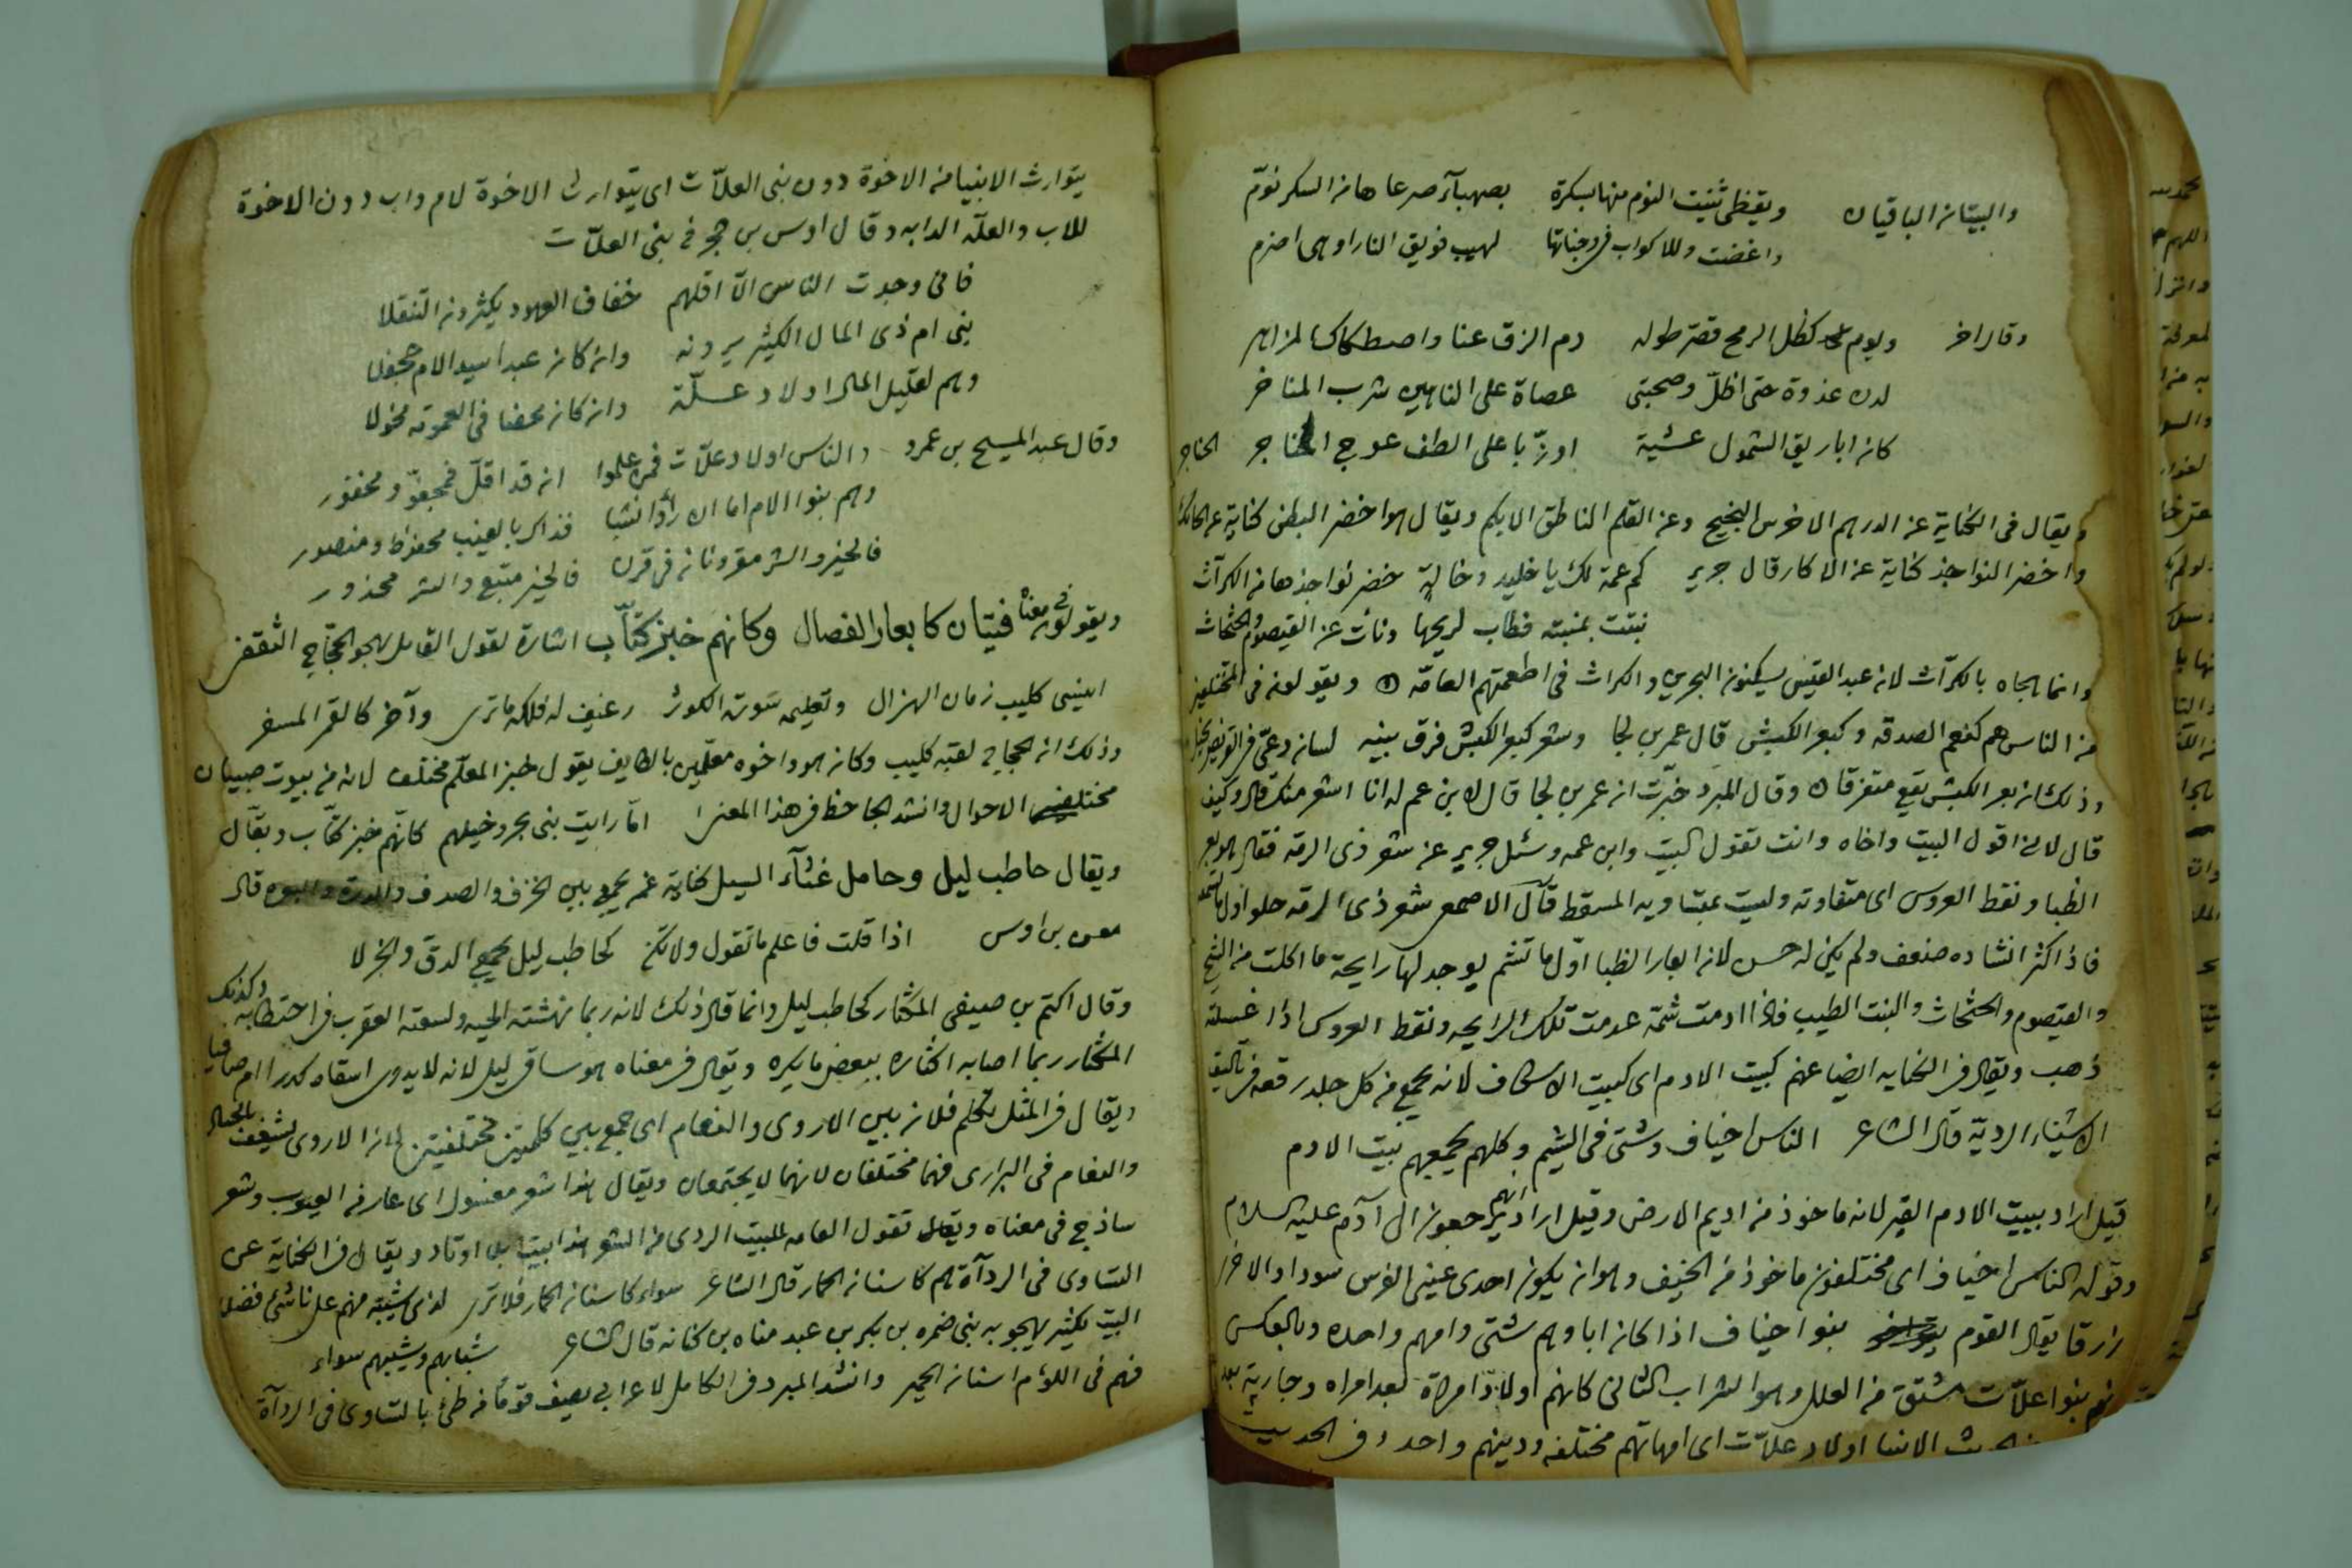 والبيتان الباقيان ويقظى ثنيت النوم منها بسكرة بصهباء صرعاها من السكر نوّم
واغضت وللاكواب فى وجناتها لهيب فويق النار اوهى اضرم
وقال اخر ويوم كظل الرمح قصّر طوله دم الزق عنا واصطكاك المزاهر
لدن غدوة حتى اظلّ وصحبتى عصاة على الناهين شرب المناخر
كان اباريق الشمول عشية اوزّ باعلى الطف عوج الحناجر الحناجر
ويقال فى الكناية عن الدرهم الاخرس النجيح وعن القلم الناطق الابكم ويقال هو اخضر البطن كناية عن الحائك
واخضر النواجذ كناية عن الاكار قال جرير كم عمة لك يا خليد وخالة خضر نواجذها من الكرّاث
نبتت بمنبته فطاب لريحها ونأت عن القيصوم والجثجاث
وانما هجاه بالكرّاث لان عبد القيس يسكنون البحرين والكراث فى اطعمتهم العامّه ويقولون فى المختلفين
من الناس هم كنعم الصدقه وكبعر الكبش قال عمر بن لجا وشعر كبعر الكبش فرق بينه لسان دعىّ فى القريض دخيل
وذلك ان بعر الكبش يقع متفرقا وقال المبرد خبّرت ان عمر بن لجا قال لابن عم له انا اشعر منك قال وكيف
قال لانى اقول البيت واخاه وانت تقول البيت وابن عمه وسئل جرير عن شعر ذى الرمة فقال هو بعر
الظبا ونقط العروس اى متفاوته وليست بمتساويه المسقط قال الاصمعى شعر ذى الرمة حلو اول ما تسمعه
فاذا كثر انشاده ضعف ولم يكن له حسن لان ابعار الظبا اوّل ما تشم يوجد لها رايحة ما اكلت من الشيح
والقيصوم والجثجاث والنبت الطيب فاذا ادمت شمّه عدمت تلك الرايحه ونقط العروس اذا غسلته
ذهب ويقال فى الكنايه ايضا عنهم كبيت الادم اى كبيت الاسكاف لانه يجمع من كل جلد رقعه فى تاليف
الاشياء الرديّة قال الشاعر الناس اخياف وشتى فى الشيم وكلهم يجمعهم بيت الادم
قيل اراد ببيت الادم القبر لانه ماخوذ من اديم الارض وقيل اراد انهم يرجعون الى آدم عليه السلام
وقوله الناس اخياف اى مختلفون ماخوذ من الخيف وهو ان يكون احدى عينى الفرس سوداء والاخرى
زرقا يقال القوم بنوا اخياف اذا كان اباوهم شتى وامهم واحده وبالعكس
بنوا علّات مشتق من العلل وهو الشراب الثانى كانهم اولاد امراة بعد امراه وجارية بعد
الانبيا اولاد علّات اى امهاتهم مختلفه ودينهم واحد وفى الحديث
يتوارث الانبيا من الاخوة دون بنى العلّات اى يتوارث الاخوة لام واب دون الاخوة
للاب والعلّه الدابه وقال اوس بن حجر فى بنى العلّات
فانى وجدت الناس الّا اقلهم خفاف العهود يكثرون التنقلا
بنى ام ذى المال الكثير يرونه وان كان عبدا سيد الام جحفلا
وهم لقليل المال اولاد علّة وان كان محضا فى العمومه مخولا
وقال عبد المسيح بن عمرو والناس اولاد علّات فمن علموا ان قد اقلّ فمجفوّ ومحقور
وهم بنوا الام اما ان رأوا نشبا فذاك بالغيب محفوظ ومنصور
فالخير والشر مقرونان فى قرن فالخير متبع والشر محذور
ويقولون فى معناه فتيان كابعار الفصال وكانهم خبز كتّاب اشارة لقول القايل يهجو الحجّاج الثقفى
اينسى كليب زمان الهزال وتعليمه سورة الكوثر رغيف له فلكة ما ترى وآخر كالقمر المسفر
وذلك ان الحجاج لقبه كليب وكان هو واخوه معلّمين بالطايف يقول خبز المعلّم مختلف لانه من بيوت صبيان
مختلفى الاحوال وانشد الجاحظ فى هذا المعنى امّا رايت بنى بحر وخيلهم كانّهم خبز كتّاب وبقّال
ويقال حاطب ليل وحامل غثآء السيل كناية عمن يجمع بين الخزف والصدف والدرة والبعره قال
معن بن اوس اذا قلت فاعلم ما تقول ولا تكن كحاطب ليل يجمع الدق والجزلا
وقال اكتم بن صيفى المكثار كحاطب ليل وانما قال ذلك لانه ربما نهشته الحيه ولسعته العقرب فى احتطابه وكذلك
المكثار ربما اصابه اكثاره ببعض ما يكره ويقال فى معناه هو ساقى ليل لانه لا يدرى اسقاه كدرا ام صافيا
ويقال فى المثل تكلم فلان بين الاروى والنعام اى جمع بين كلمتين مختلفتين لان الاروى بالجبال
والنعام فى البرارى فهما مختلفان لانهما لا يجتمعان ويقال هذا شعر مغسول اى عار من العيوب وشعر
ساذج فى معناه ويقال تقول العامه للبيت الردى من الشعر هذا بيت بلا اوتاد ويقال فى الكناية عن
التساوى فى الردآة هم كاسنان الحمار قال الشاعر سواء كاسنان الحمار فلا ترى لذى شيبة منهم على ناشئ فضلا
البيت لكثير يهجو به بنى ضمره بن بكر بن عبد مناه بن كنانه قال الشاعر شبابهم وشيبهم سواء
فهم فى اللؤم اسنان الحمير وانشد المبرد فى الكامل لاعرابى يصف قوما من طئ بالتساوى فى الردآة